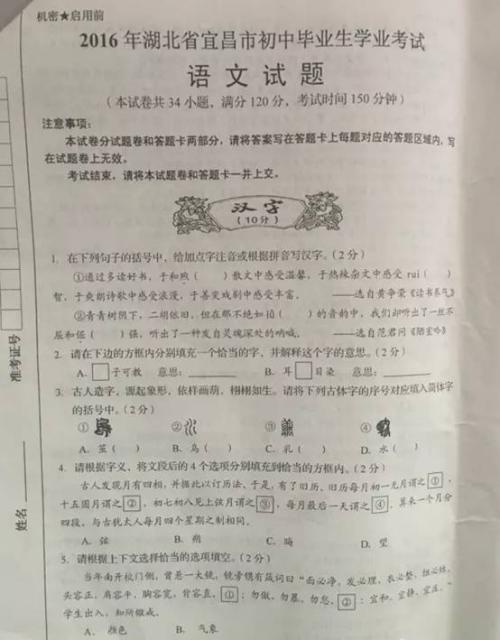 机密★启用前
2016 年湖北省宜昌市初中毕业生学业考试
语文试题
（本试卷共 34 小题，满分 120 分，考试时间 150 分钟）
注意事项：
本试卷分试题卷和答题卡两部分，请将答案写在答题卡上每题对应的答题区域内，写
在试题卷上无效。
考试结束，请将本试题卷和答题卡一并上交。
汉字
（10分）
1. 在下列句子的括号中，给加点字注音或根据拼音写汉字。（2 分）
①通过多读好书，于和煦（ ）散文中感受温馨，于热辣杂文中感受 rui（ ）
智，于爽朗诗歌中感受浪漫，于善变戏剧中感受丰富。 ——选自黄争荣《读书养气》
②青青树阴下，二胡依旧，但在那不绝如 lǚ（ ）的音韵中，我们却听出了一丝不
屈和倔（ ）强，听出了一种发自灵魂深处的呐喊。 ——选自范君问《陋室吟》
2. 请在下边的方框内分别填充一个恰当的字，并解释这个字的意思。（2 分）
A. □子可教 意思：________ B. 耳□目染 意思：________
3. 古人造字，源起象形，依样画葫，栩栩如生。请将下列古体字的序号对应填入简体字
的括号中。（2 分）
① ② ③ ④
A. 箕（ ） B. 鸟（ ） C. 礼（ ） D. 水（ ）
4. 请根据字义，将文段后的 4 个选项分别填充到恰当的方框内。（2 分）
古人发现月有四相，并据此以订历法，于是，有了旧历。旧历每月初一见月谓之①，
十五圆月谓之②，初七初八见上弦月谓之③，每月最后一天谓之④，算来一个月分
四段，与古犹太人每月四个星期之制相同。
A. 弦 B. 朔 C. 晦 D. 望
5. 请根据上下文选择恰当的选项填空。（2 分）
当年南开校门侧，曾悬一大镜，镜旁镌有箴词曰“面必净，发必理，衣必整，纽必结，
头容正，肩容平，胸容宽，背容直，①：勿傲，勿暴，勿怠，②：宜和，宜静，宜庄。”
学生出入，知所儆戒。
A. 颜色 B. 气象
准考证号
姓名